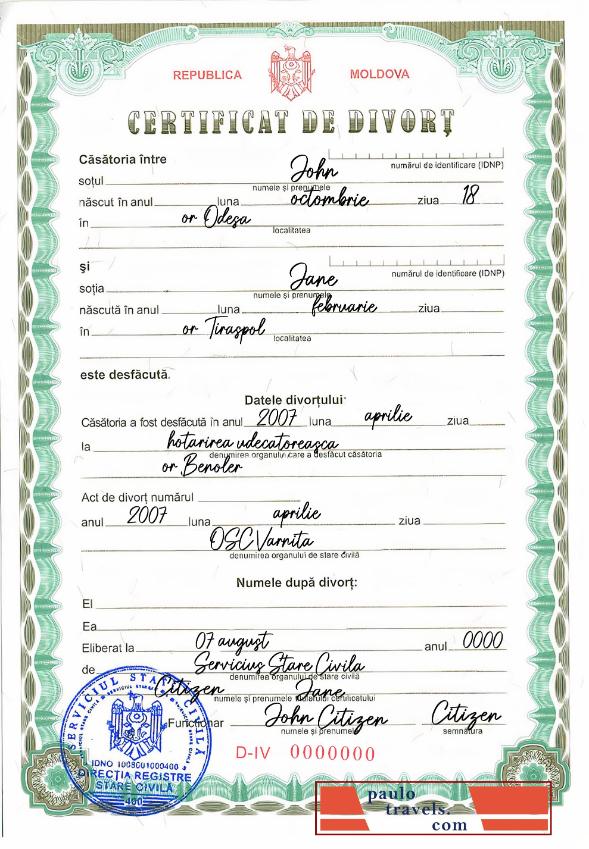 REPUBLICA MOLDOVA
CERTIFICAT DE DIVORȚ
Căsătoria între
numărul de identificare (IDNP)
soțul John
numele și prenumele
născut în anul luna octombrie ziua 18
în or Odesa
localitatea
și
numărul de identificare (IDNP)
soția Jane
numele și prenumele
născută în anul luna februarie ziua
în or Tiraspol
localitatea
este desfăcută.
Datele divorțului
Căsătoria a fost desfăcută în anul 2007 luna aprilie ziua
la hotarirea udecatoreasca
denumirea organului care a desfăcut căsătoria
or Benoler
Act de divorț numărul
anul 2007 luna aprilie ziua
OSC Varnita
denumirea organului de stare civilă
Numele după divorț:
El
Ea
Eliberat la 07 august anul 0000
de Servicius Stare Civila
denumirea organului de stare civilă
Citizen Jane
numele și prenumele titularului certificatului
Funcționar John Citizen Citizen
numele și prenumele semnătura
D-IV 0000000
SERVICIUL STARE CIVILĂ
IDNO 1006001000400
DIRECȚIA REGISTRE
STARE CIVILĂ
400
paulo
travels.
com